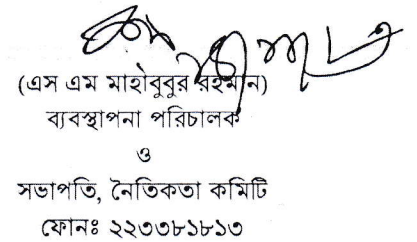 (এস এম মাহোবুবুর রহমান)
ব্যবস্থাপনা পরিচালক
ও
সভাপতি, নৈতিকতা কমিটি
ফোনঃ ২২৩৩৮১৮১৩